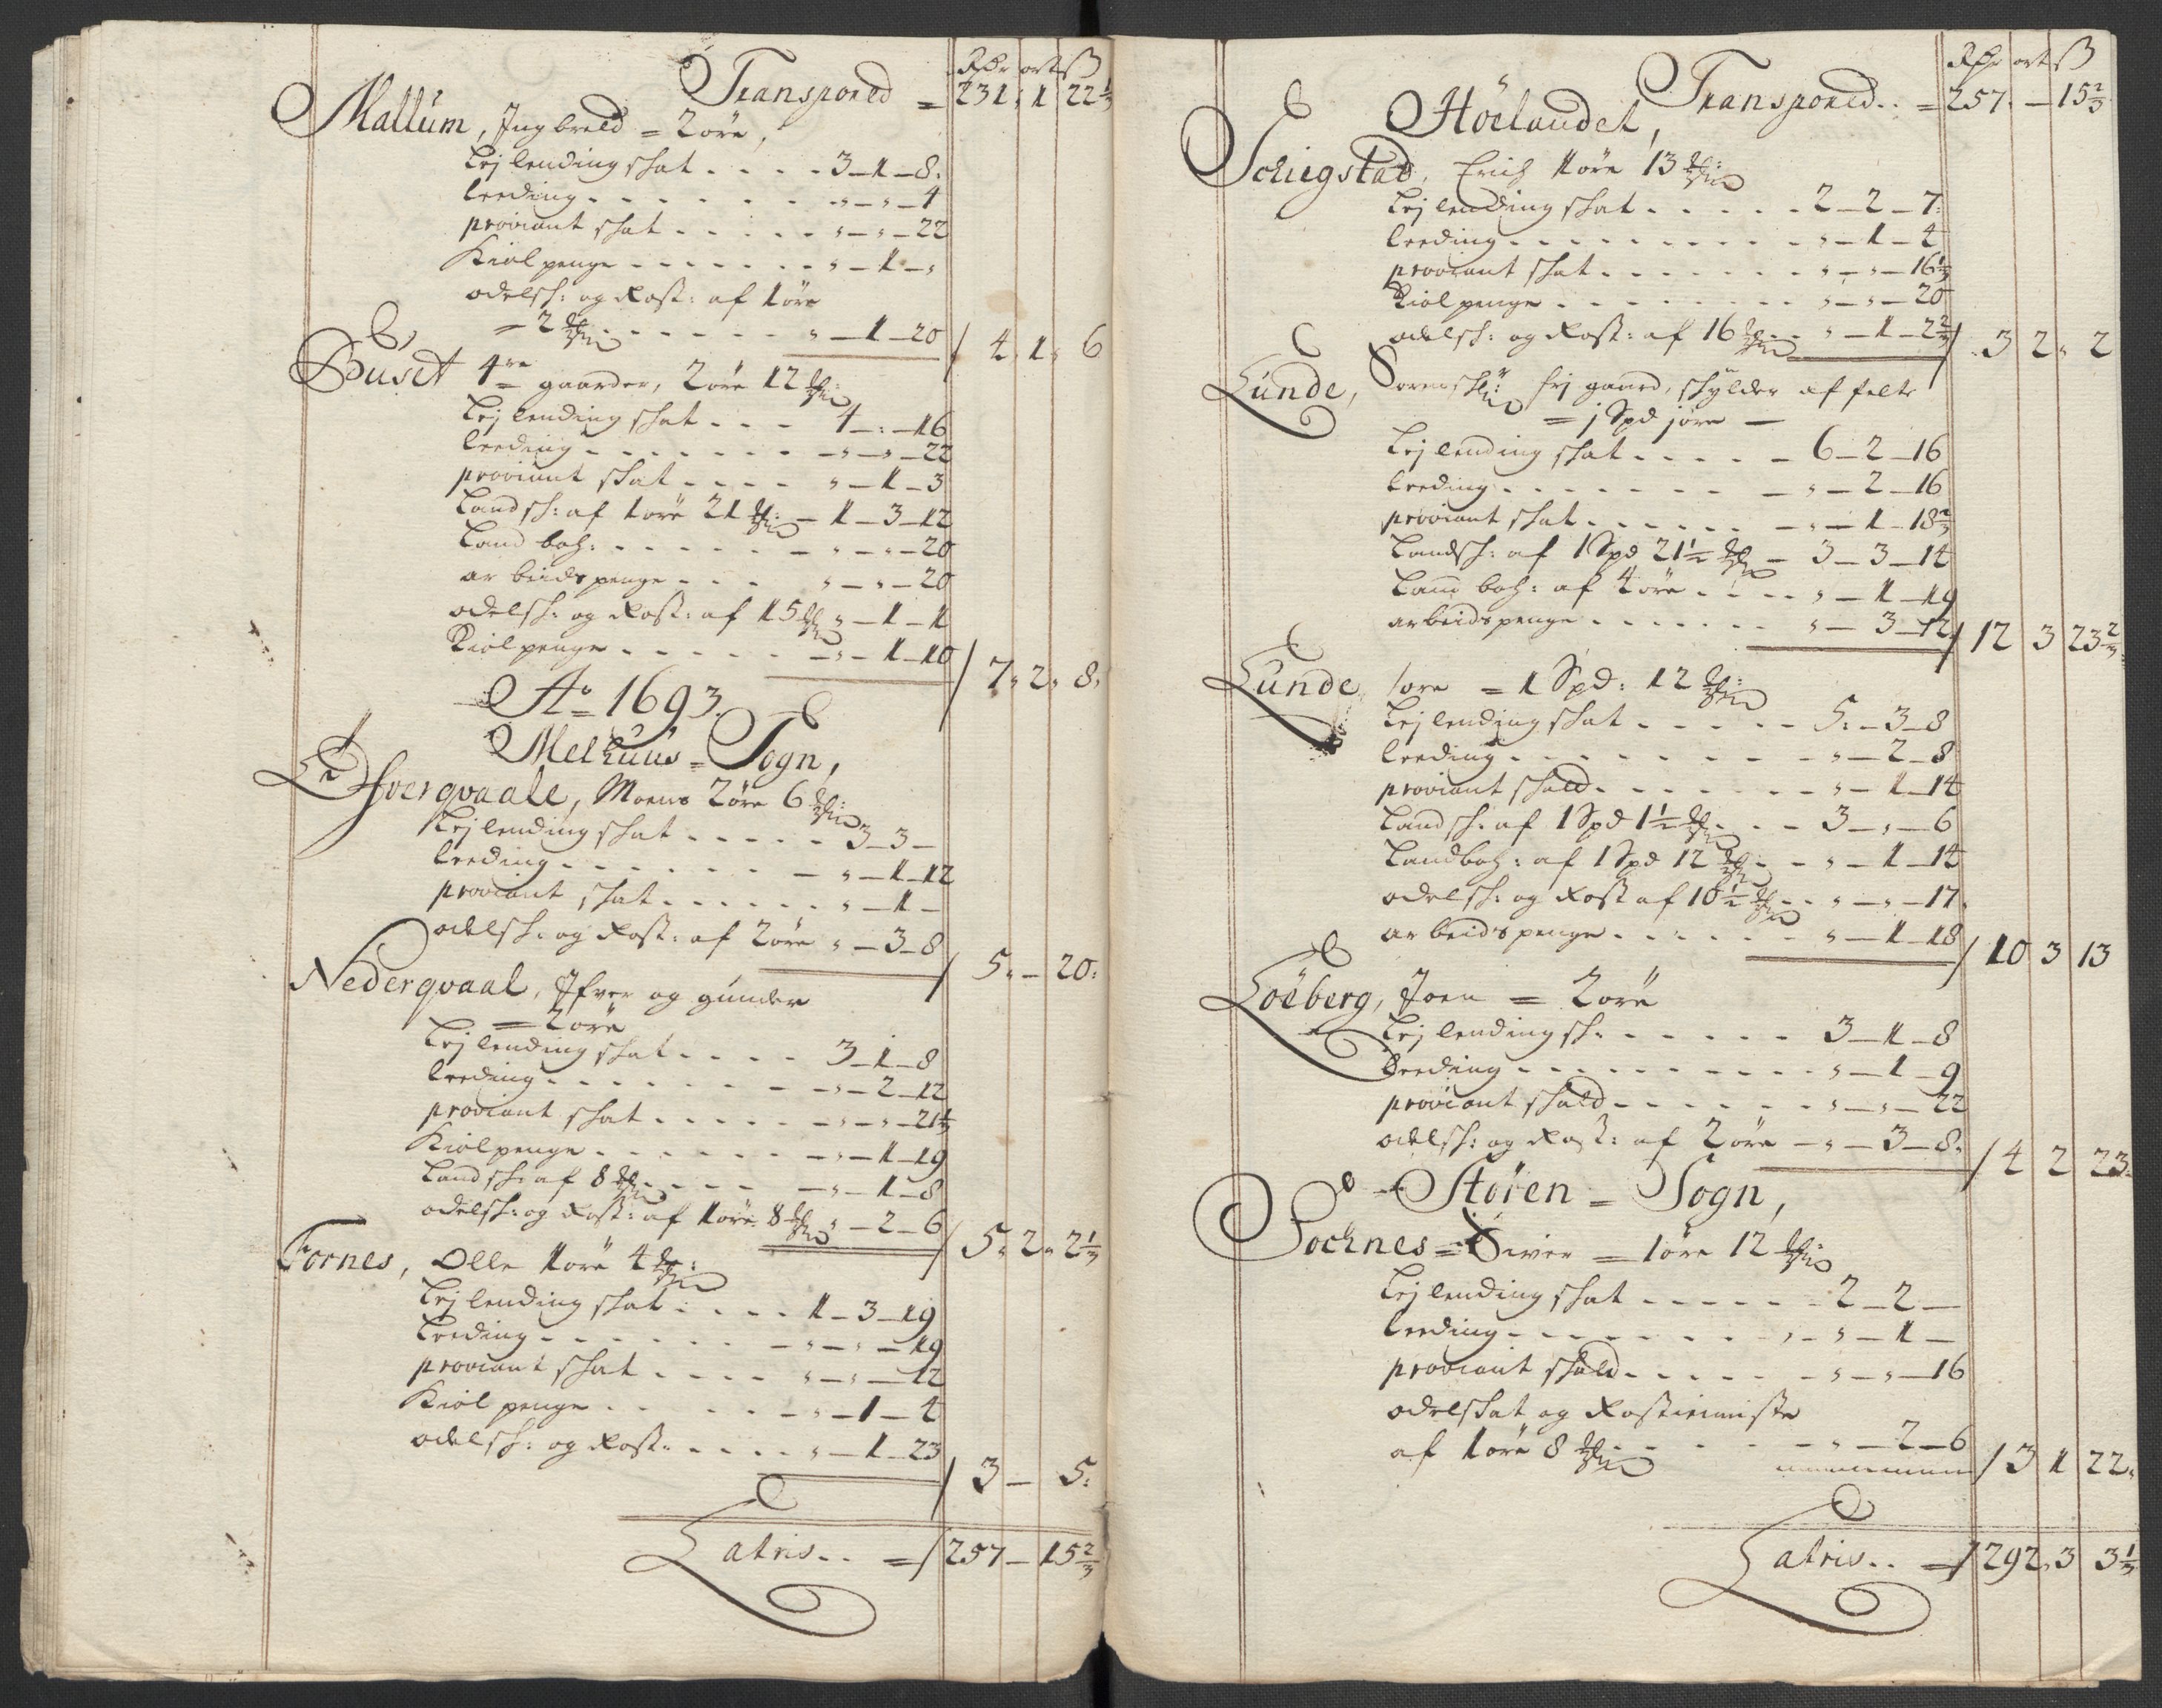 Rdr ort ß
Transpored = 231 , 1 22 1/3
Mallum, Ingbreld = 2 öre,
Lejlending skat . . . . 3 – 1 – 8 .
leeding . . . . . . . „ – „ – 4
proviant skat . . . . . „ – „ – 22
Kiölpenge . . . . . . . „ – 1 – „
odelsk: og Rost: af 1 öre
= 2 . . . . . . . „ – 1 – 20 / 4 , 1 , 6
Buset 4re gaarder, 2 öre 12
Lejlending skat . . . 4 – : – 16
leeding . . . . . . . „ – „ – 22
proviant skat . . . . „ – 1 – 3
Landsk: af 1 öre 21 – 1 – 3 – 12
Land boh: . . . . . . „ – „ – 20
arbeidspenge . . . „ – „ – 20
odelsk: og Rost: af 15 „ – 1 – 1
Kiölpenge . . . . . . „ – 1 – 10 / 7 „ 2 „ 8 ,
Ao 1693.
Melhuus = Sogn,
Öfverqvaale, Moens 2 öre 6
Lejlending skat . . . . . 3 – 3 –
leeding . . . . . . . „ – 1 – 12
proviant skat . . . . . . „ – 1 –
odelsk: og Rost: af 2 öre „ – 3 – 8 / 5 „ – 20 :
Nederqvaal, Ifver og gunder
= 2 öre
Lejlending skat . . . . 3 – 1 – 8
leeding . . . . . . . „ – 2 – 12
proviant skat . . . . . „ – „ – 21 1/3
Kiölpenge . . . . . . „ – 1 – 19
Landsk: af 8 . . . . „ – 1 – 8
odelsk: og Rost: af 1 öre 8 „ – 2 – 6 / 5 „ 2 „ 2 1/3
Fornes, Olle 1 öre 4
Lejlending skat . . . . 1 – 3 – 19
Leeding . . . . . . . „ – „ – 19
proviant skat . . . . „ – „ – 12
Kiöl penge . . . . . „ – 1 – 4
odelsk: og Rost: . . . . „ – 1 – 23 / 3 – 5 :
Latris . . = / 257 – 15 2/3
Rdr ort ß
Transpored . . = 257 „ – 15 2/3
Höelandet,
Schiegstad, Erich 1 öre 13
Lejlending skat . . . . . 2 – 2 – 7 :
leeding . . . . . . . . „ – 1 – 4
proviant skat . . . . . . „ – „ – 16 1/3
Kiölpenge . . . . . . . . „ – „ – 20
odelsk: og Rost: af 16 . . „ – 1 – 2 2/3 / 3 2 „ 2
Lunde, Sorensk: frj gaard, skylder af felt
= j Spd jöre –
Lejlending skat . . . . . 6 – 2 – 16
leeding . . . . . . . „ – 2 – 16
proviant skat . . . . . . „ – 1 – 18 2/3
Landsk: af 1 Spd 21 1/2 – 3 – 3 – 14
Land boh: af 4 öre . . . . „ – 1 – 19
arbeidspenge . . . . . . . „ – 3 – 12 / 12 3 23 2/3
Lunde, Tore = 1 Spd: 12
Lejlending skat . . . . . 5 : – 3 – 8
leeding . . . . . . . . „ – 2 – 8
proviant skald . . . . . . „ – 1 – 14
Landsk: af 1 Spd 1 1/2 . . . 3 – „ – 6
Landboh: af 1 Spd 12 . . „ – 1 – 14
odelsk: og Rost af 10 1/2 . . „ – „ – 17 .
arbeidspenge . . . . . . „ – 1 – 18 / 10 3 13
Löeberg, Joen = 2 öre
Lejlendingsk: . . . . . . 3 – 1 – 8
Leeding . . . . . . . . . . „ – 1 – 9
proviant skald . . . . . . „ – „ – 22
odelsk: og Rost: af 2 öre – „ – 3 – 8 . / 4 2 23 :
Stören = Sogn,
Sochnes = Siver = 1 öre 12
Lejlending skat . . . . . . 2 – 2 –
leeding . . . . . . . . „ – 1 –
proviant skald . . . . . . „ – „ – 16
odelskat og Rostieniste
af 1 öre 8 . . . . . „ – 2 – 6 / 3 1 22 „
Latris . . = / 292 „ 3 3 1/3